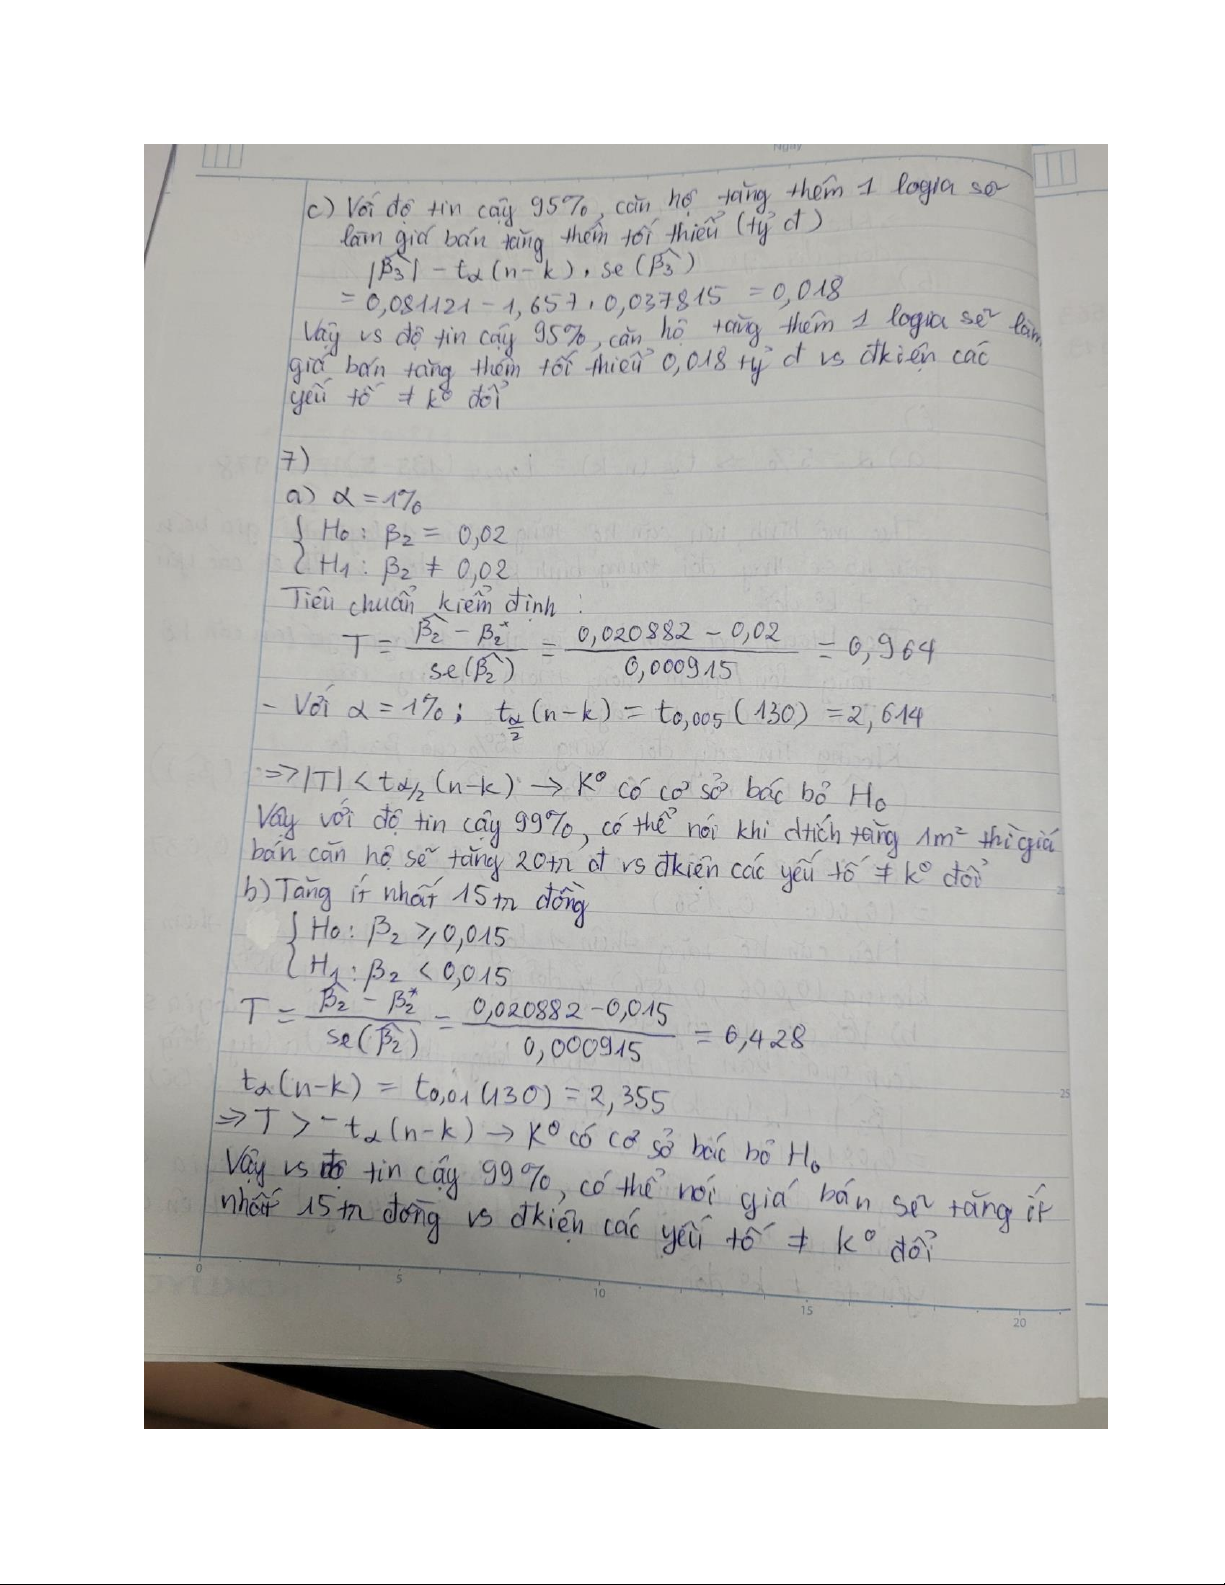 Ngày
c) Với độ tin cậy 95%, căn hộ tăng thêm 1 logia sẽ
làm giá bán tăng thêm tối thiểu (tỷ đ)
|β̂3| - tα(n-k). se(β̂3)
= 0,081121 - 1,657.0,037815 = 0,018
Vậy vs độ tin cậy 95%, căn hộ tăng thêm 1 logia sẽ làm
giá bán tăng thêm tối thiểu 0,018 tỷ đ vs đkiện các
yếu tố ≠ k° đổi
7)
a) α = 1%
{ H0: β2 = 0,02
{ H1: β2 ≠ 0,02
Tiêu chuẩn kiểm định:
T = (β̂2 - β2*) / se(β̂2) = (0,020882 - 0,02) / 0,000915 = 0,964
- Với α = 1%; tα/2(n-k) = t0,005(130) = 2,614
=> |T| < tα/2(n-k) → K° có cơ sở bác bỏ H0
Vậy với độ tin cậy 99%, có thể nói khi dtích tăng 1m² thì giá
bán căn hộ sẽ tăng 20tr đ vs đkiện các yếu tố ≠ k° đổi
b) Tăng ít nhất 15tr đồng
{ H0: β2 ≥ 0,015
{ H1: β2 < 0,015
T = (β̂2 - β2*) / se(β̂2) = (0,020882 - 0,015) / 0,000915 = 6,428
tα(n-k) = t0,01(130) = 2,355
=> T > - tα(n-k) → K° có cơ sở bác bỏ H0
Vậy vs độ tin cậy 99%, có thể nói giá bán sẽ tăng ít
nhất 15tr đồng vs đkiện các yếu tố ≠ k° đổi
0 5 10 15 20
25